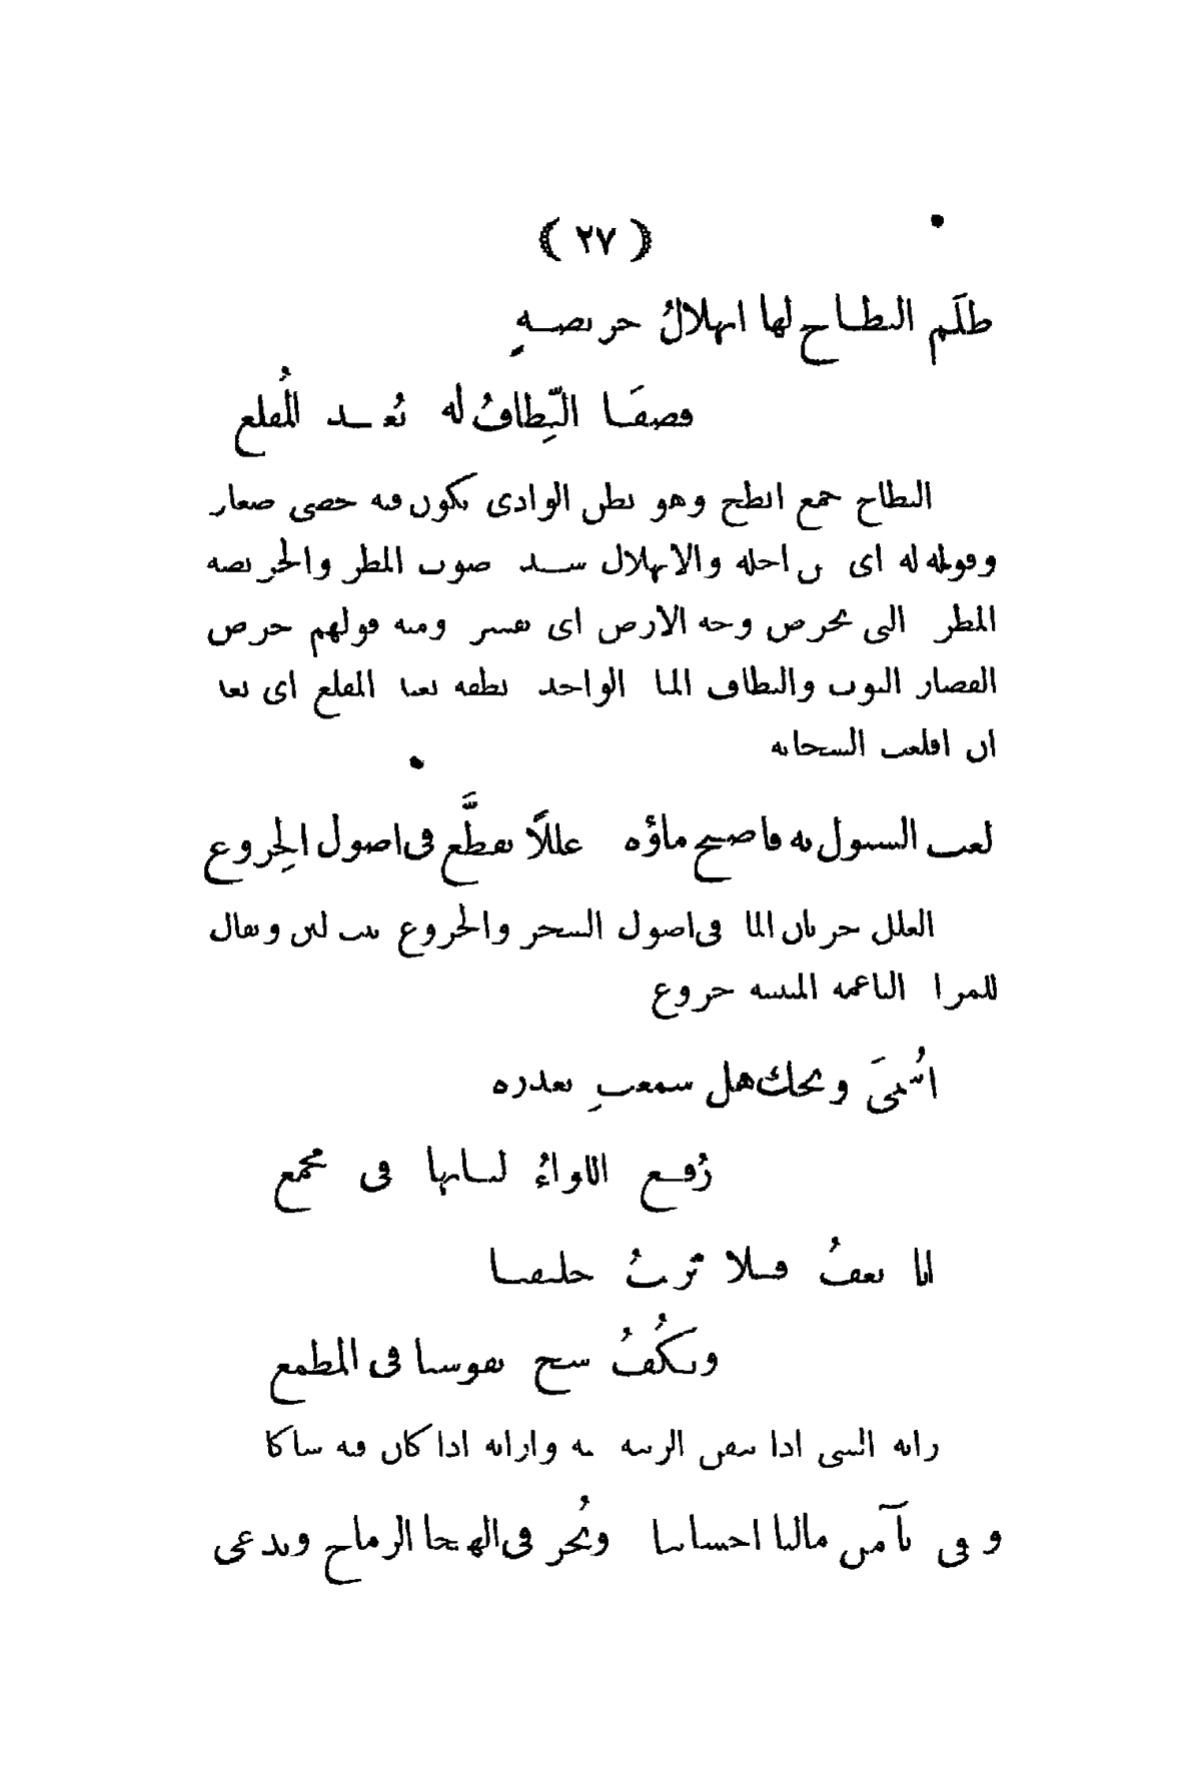 ( ٢٧ )
ظلَم البطاح لها انهلالُ حريصةٍ
فصفَا النِّطافُ له بُعيد المُقلع
البطاح جمع ابطح وهو بطن الوادى يكون فيه حصى صغار
وقوله له اى من اجله والانهلال شدة صوب المطر والحريصة
المطرة التى تحرص وجه الارض اى تقشر ومنه قولهم حرص
القصار الثوب والنطاف الماء الواحد نطفة بعيد المقلع اى بعد
ان اقلعت السحابة
لعب السيول به فاصبح ماؤه غللًا تقطَّع فى اصول الخِروع
الغلل جريان الماء فى اصول الشجر والخروع نبت لين ويقال
للمراة الناعمة المتثنية خروع
اسُمىَّ ويحك هل سمعتِ بغدرة
رُفع اللواءُ لنا بها فى مجمع
انا نعفُّ فلا نُريبُ حليفنا
ونكُفُّ شح نفوسنا فى المطمع
رابه الشى اذا تيقن الريبة منه وارابه اذا كان فيه شاكا
ونقى بآمن مالنا احسابنا ونُجر فى الهيجا الرماح وندعى